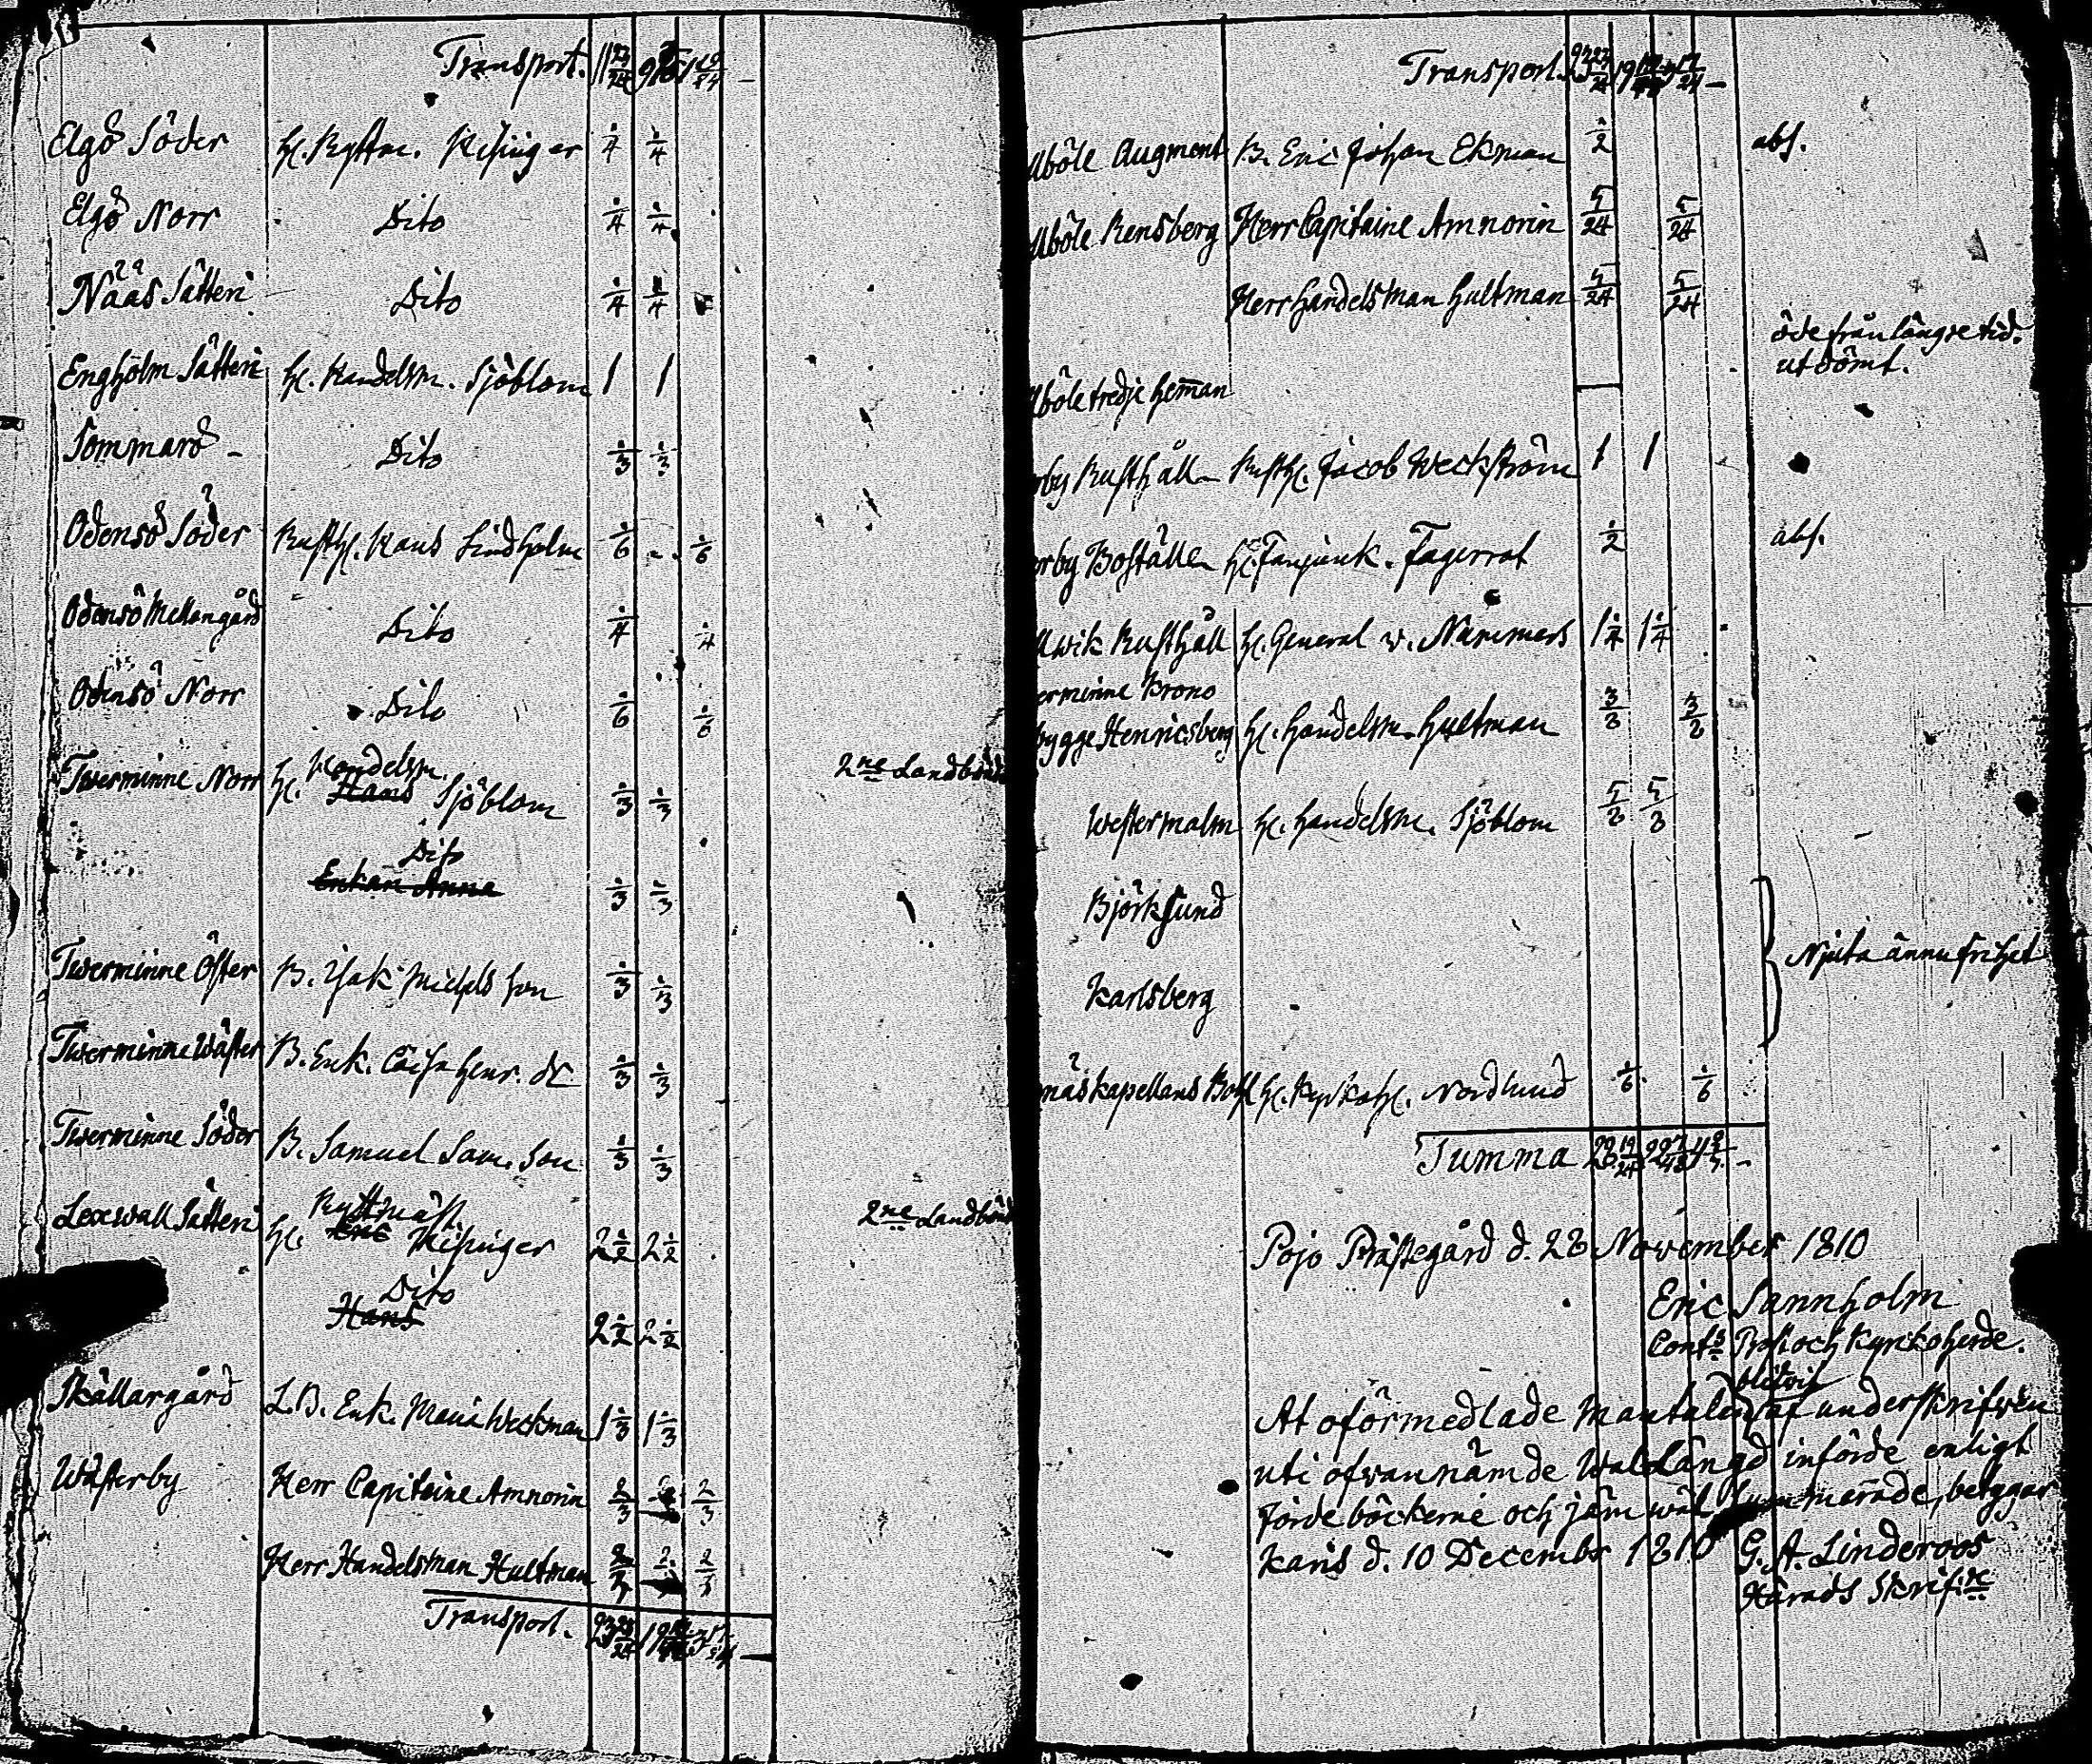 Transport.
Elgö Söder Hr. Ryttm. 1/4 1/4
Elgö Norr Dito 1/4 1/4
Näås Sätteri Dito 1/4 1/4
Engholm Sätteri Hr. Handelsm. Sjöblom 1 1
Sommarö Dito 1/3 1/3
Odensö Söder Rusth. Hans Lindholm 1/6 1/6
Odensö Mellangård Dito 1/4 1/4
Odensö Norr Dito 1/6 1/6
Twerminne Norr Hr. Handelsm. Hans Sjöblom 1/3 1/3 2ne Landbönd
Dito
Enkan Anna 1/3 1/3
Twerminne Öster B. Isak Michels Son 1/3 1/3
Twerminne Wäster B. Enk. Caisa Henr. dr 1/3 1/3
Twerminne Söder B. Samuel Sam. Son 1/3 1/3
Lexwall Sätteri Hr. Ryttmäst 2 1/2 2 1/2 2ne Landbönd
Dito
Hans 2 1/2 2 1/2
Skållargård L.B. Enk. Maria Weckman 1 1/3 1 1/3
Wästerby Herr Capitaine Amnorin 2/3 2/3
Herr Handelsman Hultman 2/3 2/3
Transport.
Transport.
böle Augment B. Eric Johan Ekman 1/2 abs.
böle Rensberg Herr Capitaine Amnorin 5/24 5/24
Herr Handelsman Hultman 5/24 5/24
öde från längre tid.
utdömt.
böle tredje heman
rby Rusthåll Rusth. Jacob Weckström 1 1
rby Boställe Hr. Fanjunk. Fagerrot 1/2 abs.
wik Rusthåll Hr. General v. Nummers 1 1/4 1 1/4
erminne Krono
bygge Henricsberg Hr. Handelsm. Hultman 3/8 3/8
Westermalm Hr. Handelsm. Sjöblom 5/8 5/8
Björksund
Njuta ännu frihet
Karlsberg
näs kapellans Bohl Hr. Kyrkoh. Nordlund 1/6 1/6
Summa
Pojo Prästegård d. 28 November 1810
Eric Sannholm
Conts Prost och Kyrckoherde.
blifvit
At oförmedlade Mantalen af underskrifwen
uti ofwannämde Wallängd införde enligt
Jorde böckerne och jämwäl summerade, betygar
Karis d. 10 Decembr 1810 G. A. Linderoos
Härads Skrifre